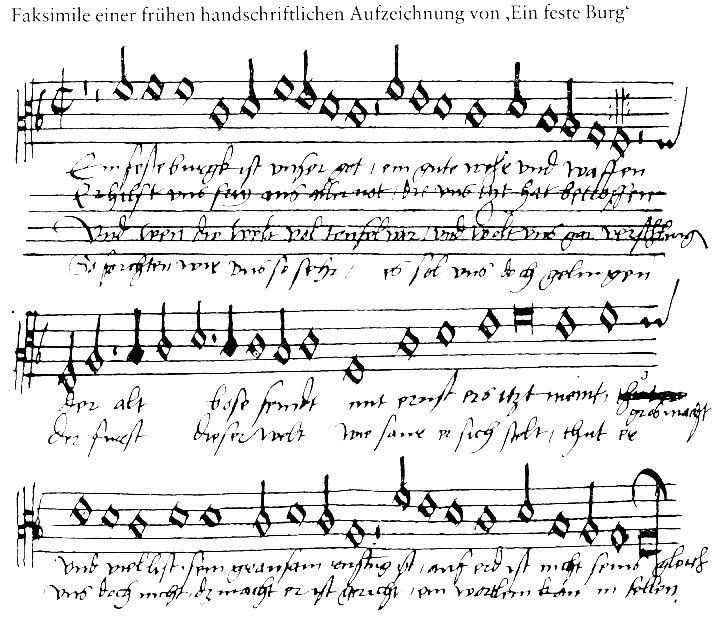 Faksimile einer frühen handschriftlichen Aufzeichnung von ‚Ein feste Burg‘
Ein feste burgk ist unser got, ein gute wehr und waffen
Er hilft uns frey aus aller not, die uns itzt hat betroffen
Und wen die welt vol teufel wer, und wolt uns gar verschling
So forchten wir uns so sehr, es sol uns doch gelingen
der alt bose feindt mit ernst ers itzt meint, gros macht
der furst dieser welt wie saur er sich stelt, thut er
und viel list, sein grausam rustug ist, auf erd ist nicht seins gleich
uns doch nicht, dz macht er ist gericht, ein wortlein kan in fellen